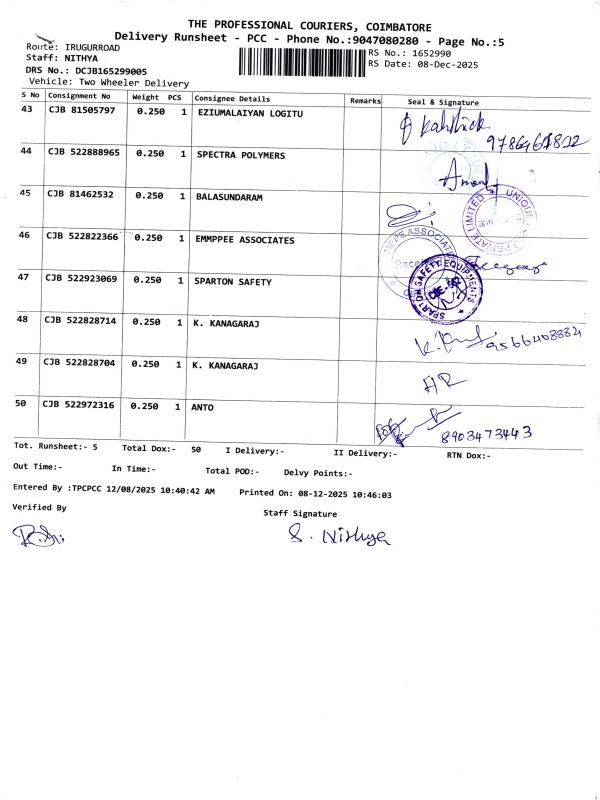 THE PROFESSIONAL COURIERS, COIMBATORE
Delivery Runsheet - PCC - Phone No.:9047080280 - Page No.:5
Route: IRUGURROAD
RS No.: 1652990
Staff: NITHYA
RS Date: 08-Dec-2025
DRS No.: DCJB165299005
Vehicle: Two Wheeler Delivery
S No Consignment No Weight PCS Consignee Details Remarks Seal & Signature
43 CJB 81505797 0.250 1 EZIUMALAIYAN LOGITU
44 CJB 522888965 0.250 1 SPECTRA POLYMERS
45 CJB 81462532 0.250 1 BALASUNDARAM
UNIQUE
PRIVATE LIMITED
46 CJB 522822366 0.250 1 EMMPPEE ASSOCIATES
47 CJB 522923069 0.250 1 SPARTON SAFETY
SPARTON SAFETY EQUIPMENTS
48 CJB 522828714 0.250 1 K. KANAGARAJ
9566408884
49 CJB 522828704 0.250 1 K. KANAGARAJ
50 CJB 522972316 0.250 1 ANTO
8903473443
Tot. Runsheet:- 5 Total Dox:- 50 I Delivery:- II Delivery:- RTN Dox:-
Out Time:- In Time:- Total POD:- Delvy Points:-
Entered By :TPCPCC 12/08/2025 10:40:42 AM Printed On: 08-12-2025 10:46:03
Verified By Staff Signature
S. Nithya